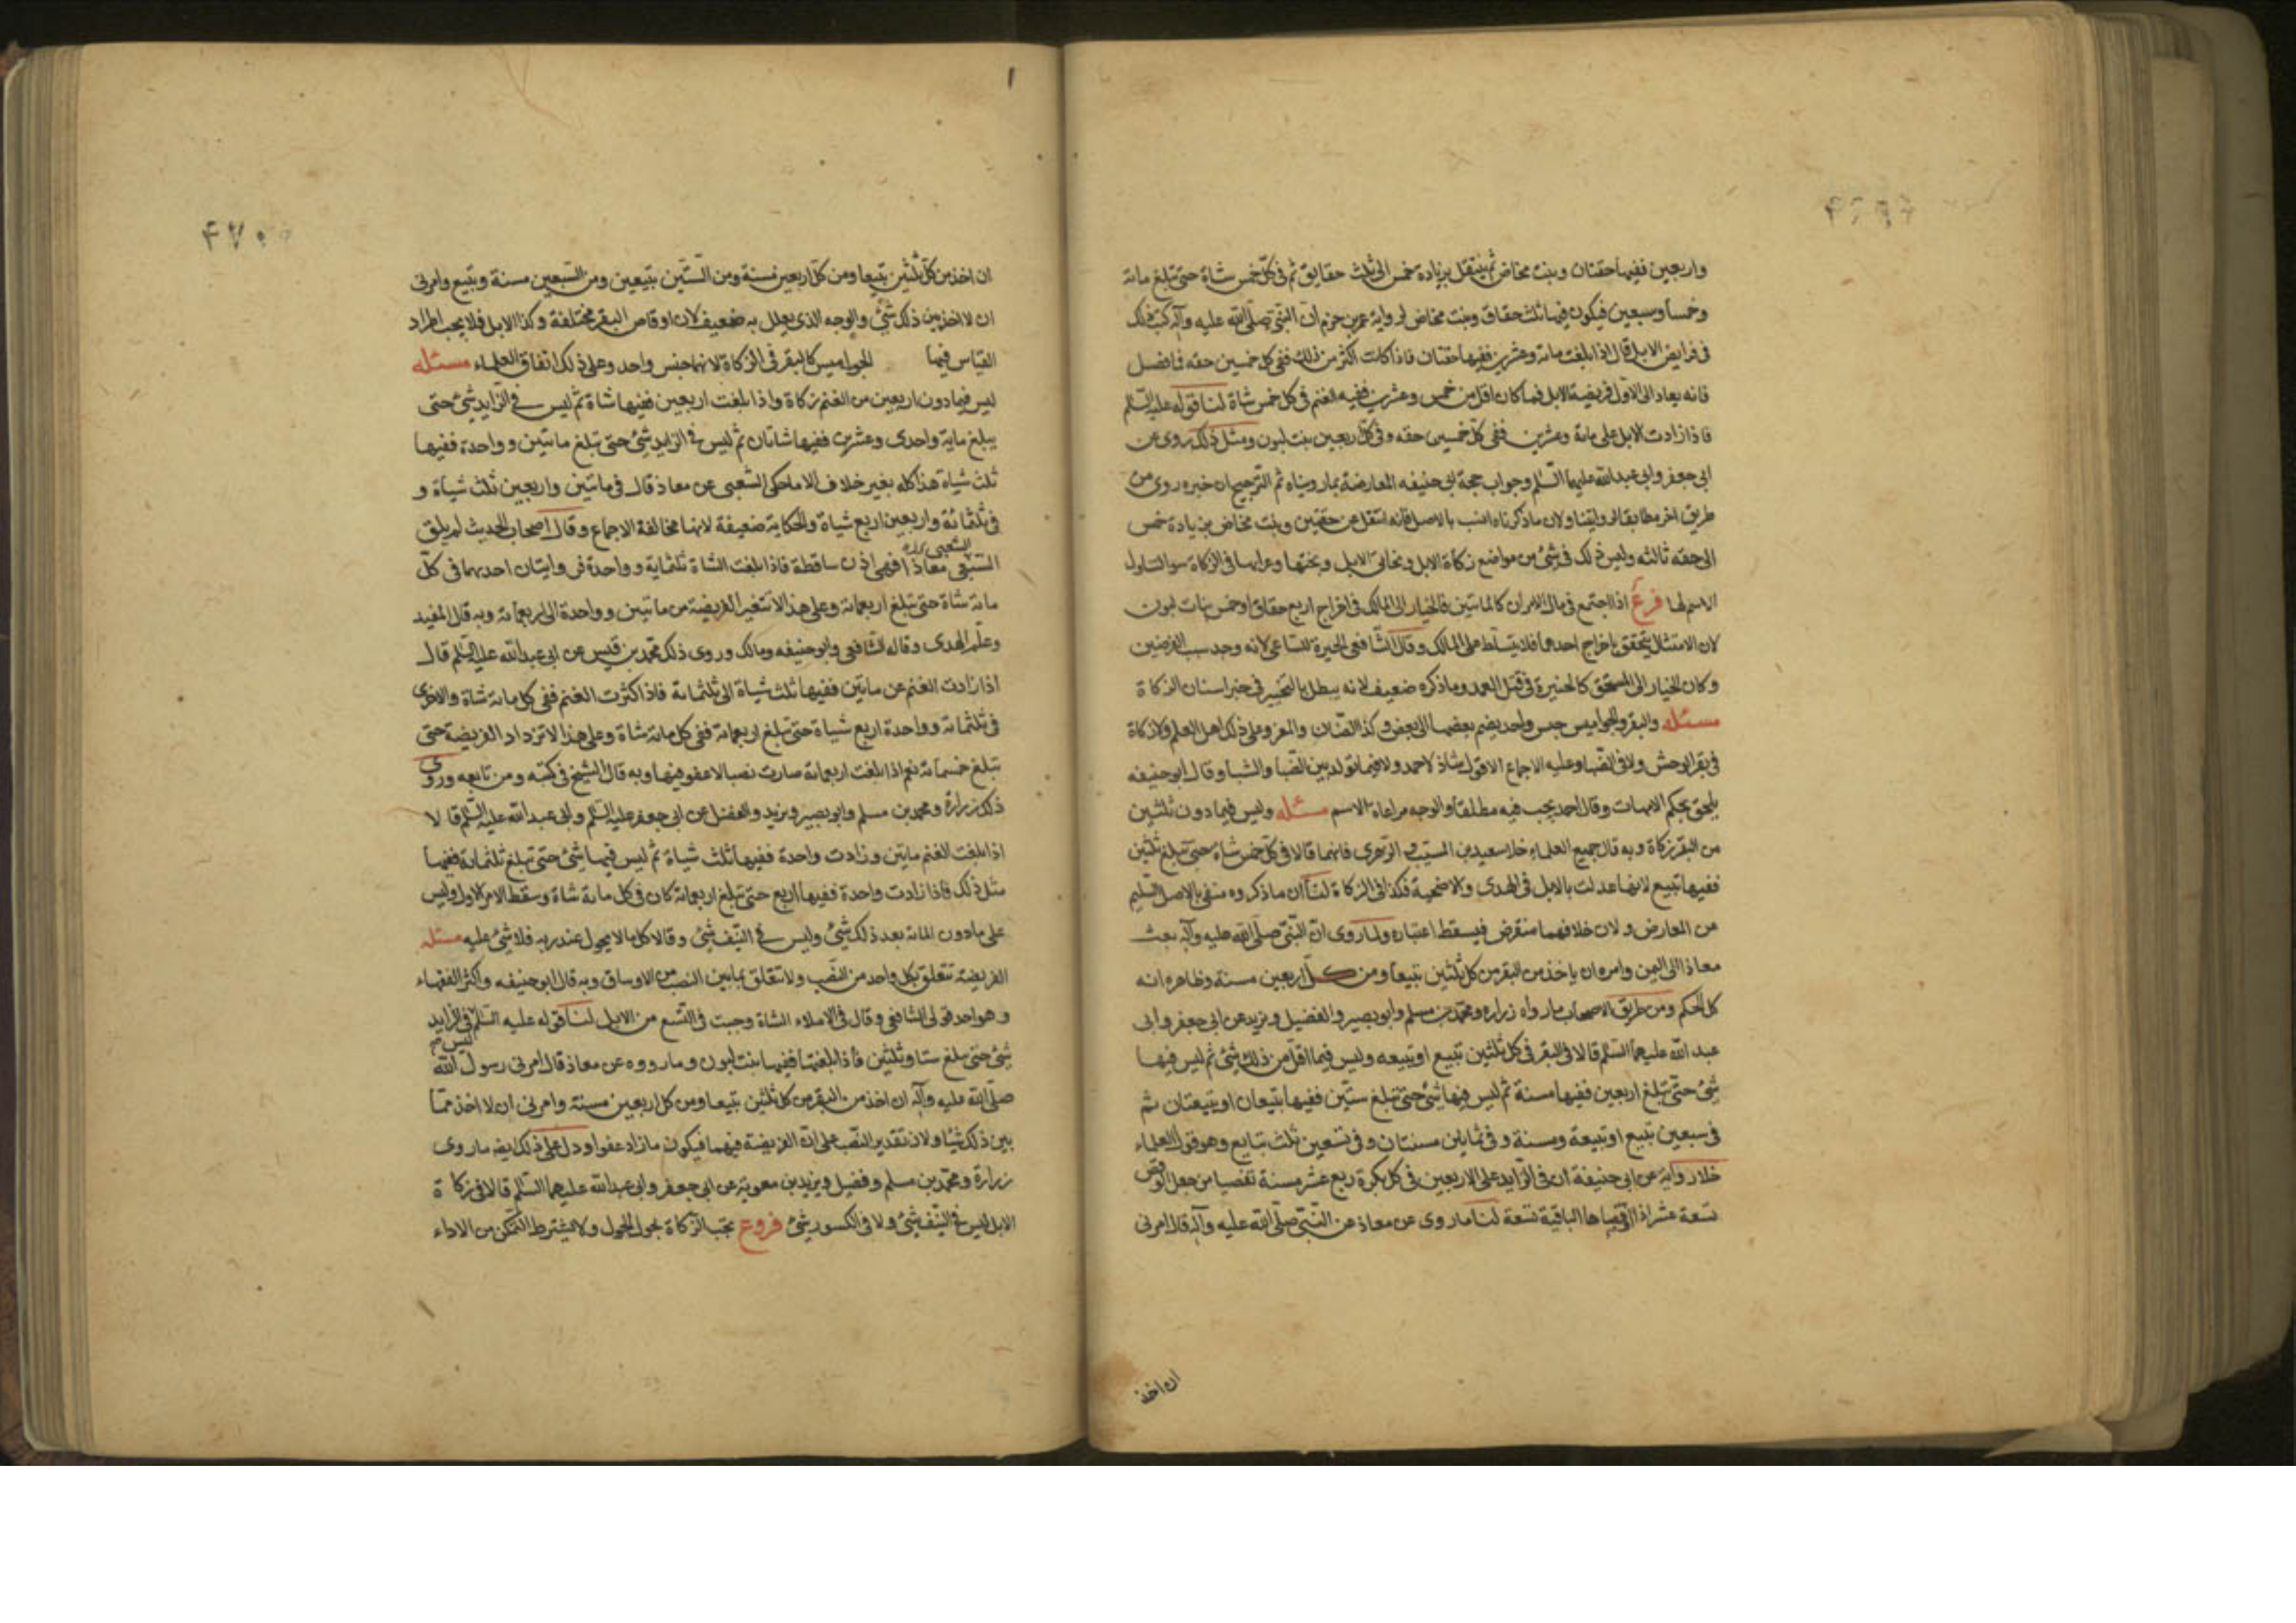 واربعين ففيها حقتان وبنت مخاض ثم ينتقل بزيادة خمس الى ثلث حقايق ثم فى كل خمس شاة حتى تبلغ مائة
وخمسا وسبعين فيكون فيها ثلث حقاق وبنت مخاض لرواية عمرو بن حزم ان النبى صلى الله عليه وآله كتب ذلك
فى فرايض الابل قال اذا بلغت مائة وعشرين ففيها حقتان فاذا كانت اكثر من ذلك ففى كل خمسين حقه فما فضل
فانه يعاد الى الاول فريضة الابل فما كان اقل من خمس وعشرين ففيه الغنم فى كل خمس شاة لنا قوله عليه السلم
فاذا زادت الابل على مائة وعشرين ففى كل خمسين حقه وفى كل اربعين بنت لبون ومثل ذلك روى عن
ابى جعفر وابى عبد الله عليهما السلم وجواب حجة ابى حنيفه المعارضة بما رويناه ثم الترجيح ان خبره روى من
طريق اخر مطابقا لروايتنا ولان ما ذكرناه انسب بالاصل فانه انتقل من حقتين وبنت مخاض بزيادة خمس
الى حقه ثالثه وليس ذلك فى شئ من مواضع زكاة الابل وبخاتى الابل وبختها وعرابها فى الزكاة سوا لتناول
الاسم لها فرع اذا اجتمع فى مال الامران كالمائتين فالخيار الى المالك فى اخراج اربع حقاق او خمس بنات لبون
لان الامتثال يتحقق باخراج احدهما فلا يتسلط على المالك وقال الشافعى الخيرة للساعى لانه وجد سبب الفرضين
وكان الخيار الى المستحق كالخيرة فى قتل العمد وما ذكره ضعيف لانه يبطل بالتخيير فى جبر اسنان الزكاة
مسئله والبقر والجواميس جنس واحد يضم بعضها الى بعض وكذا الضان والمعز وعلى ذلك اهل العلم ولا زكاة
فى بقر الوحش ولا فى الضبا وعليه الاجماع الا قول شاذ لاحمد ولا فيما تولد بين الضبا والشيا وقال ابو حنيفه
يلحق بحكم الامهات وقال احمد يجب فيه مطلقا والوجه مراعاة الاسم مسئله وليس فيما دون ثلثين
من البقر زكاة وبه قال جميع العلماء خلا سعيد بن المسيب والزهرى فانهما قالا فى كل خمس شاة حتى تبلغ ثلثين
ففيها تبيع لانها عدلت بالابل فى الهدى والاضحية فكذا فى الزكاة لنا ان ما ذكروه منفى بالاصل السليم
من المعارض ولان خلافهما منقرض فيسقط اعتباره ولما روى ان النبى صلى الله عليه وآله بعث
معاذا الى اليمن وامره ان ياخذ من البقر من كل ثلثين تبيعا ومن كل اربعين مسنة وظاهره انه
كل الحكم ومن طريق الاصحاب ما رواه زراره ومحمد بن مسلم وابو بصير والفضيل وبريد عن ابى جعفر وابى
عبد الله عليهما السلم قالا فى البقر فى كل ثلثين تبيع او تبيعه وليس فيما اقل من ذلك شئ ثم ليس فيها
شئ حتى تبلغ اربعين ففيها مسنة ثم ليس فيها شئ حتى تبلغ ستين ففيها تبيعان او تبيعتان ثم
فى سبعين تبيع او تبيعة ومسنة وفى ثمانين مسنتان وفى تسعين ثلث تبايع وهو قول العلماء
خلا رواية عن ابى حنيفة ان فى الزايد على الاربعين فى كل بكرة ربع عشر مسنة تفصيا من جعل الوقص
تسعة عشر اذ اوقاصها الباقية تسعة لنا ما روى عن معاذ عن النبى صلى الله عليه وآله قال امرنى
ان اخذ
۴۷۰
ان اخذ من كل ثلثين تبيعا ومن كل اربعين مسنة ومن الستين تبيعين ومن السبعين مسنة وتبيع وامرنى
ان لا اخذ بين ذلك شئ والوجه الذى يعلل به ضعيف لان اوقاص البقر مختلفة وكذا الابل فلا يجب اطراد
القياس فيها الجواميس كالبقر فى الزكاة لانها جنس واحد وعلى ذلك اتفاق العلماء مسئله
ليس فيما دون اربعين من الغنم زكاة واذا بلغت اربعين ففيها شاة ثم ليس فى الزايد شئ حتى
يبلغ ماية واحدى وعشرين ففيها شاتان ثم ليس فى الزايد شئ حتى تبلغ مائتين وواحدة ففيها
ثلث شياة هذا كله بغير خلاف الا ما حكى الشعبى عن معاذ قال فى مائتين واربعين ثلث شياة و
فى ثلثمائة واربعين اربع شياة والحكاية ضعيفة لانها مخالفة الاجماع وقال اصحاب الحديث لم يلق
الشعبى معاذا فهى اذن ساقطة فاذا بلغت الشاة ثلثماية وواحدة فروايتان احدهما فى كل
مائة شاة حتى تبلغ اربعمائة وعلى هذا لا تتغير الفريضة من مائتين وواحدة الى اربعمائة وبه قال المفيد
وعلم الهدى وقاله الشافعى وابو حنيفه ومالك وروى ذلك محمد بن قيس عن ابى عبد الله عليه السلم قال
اذا زادت الغنم عن مايتين ففيها ثلث شياة الى ثلثمائة فاذا كثرت الغنم ففى كل مائة شاة والاخرى
فى ثلثمائة وواحدة اربع شياة حتى تبلغ اربعمائة ففى كل مائة شاة وعلى هذا لا تزداد الفريضة حتى
تبلغ خمسمائة نعم اذا بلغت اربعمائة صارت نصبا لا عفو فيها وبه قال الشيخ فى كتبه ومن تابعه وروى
ذلك زرارة ومحمد بن مسلم وابو بصير وبريد والفضل عن ابى جعفر عليه السلم وابى عبد الله عليه السلم قالا
اذا بلغت الغنم مايتين وزادت واحدة ففيها ثلث شياة ثم ليس فيها شئ حتى تبلغ ثلثمائة ففيها
مثل ذلك فاذا زادت واحدة ففيها اربع حتى تبلغ اربعمائة كان فى كل مائة شاة وسقط الامر الاول وليس
على ما دون المائة بعد ذلك شئ وليس فى النيف شئ وقالا كل ما لا يحول عند ربه فلا شئ عليه مسئله
الفريضة تتعلق بكل واحد من النصب ولا تتعلق بما بين النصب من الاوساق وبه قال ابو حنيفه واكثر الفقهاء
وهو احد قولى الشافعى وقال فى الاملاء الشاة وجبت فى التسع من الابل لنا قوله عليه السلم ليس فى الزايد
شئ حتى يبلغ ستا وثلثين فاذا بلغتها ففيها بنت لبون وما رووه عن معاذ قال امرنى رسول الله
صلى الله عليه وآله ان اخذ من البقر من كل ثلثين تبيعا ومن كل اربعين مسنة وامرنى ان لا اخذ مما
بين ذلك شيئا ولان تقدير النصب على ان الفريضة فيهما فيكون ما زاد عفوا ودل على ذلك ايضا ما روى
زرارة ومحمد بن مسلم وفضيل وبريد بن معوية عن ابى جعفر وابى عبد الله عليهما السلم قالا فى زكاة
الابل ليس فى النيف شئ ولا فى الكسور شئ فروع تجب الزكاة بحول الحول ولا يشترط التمكن من الاداء